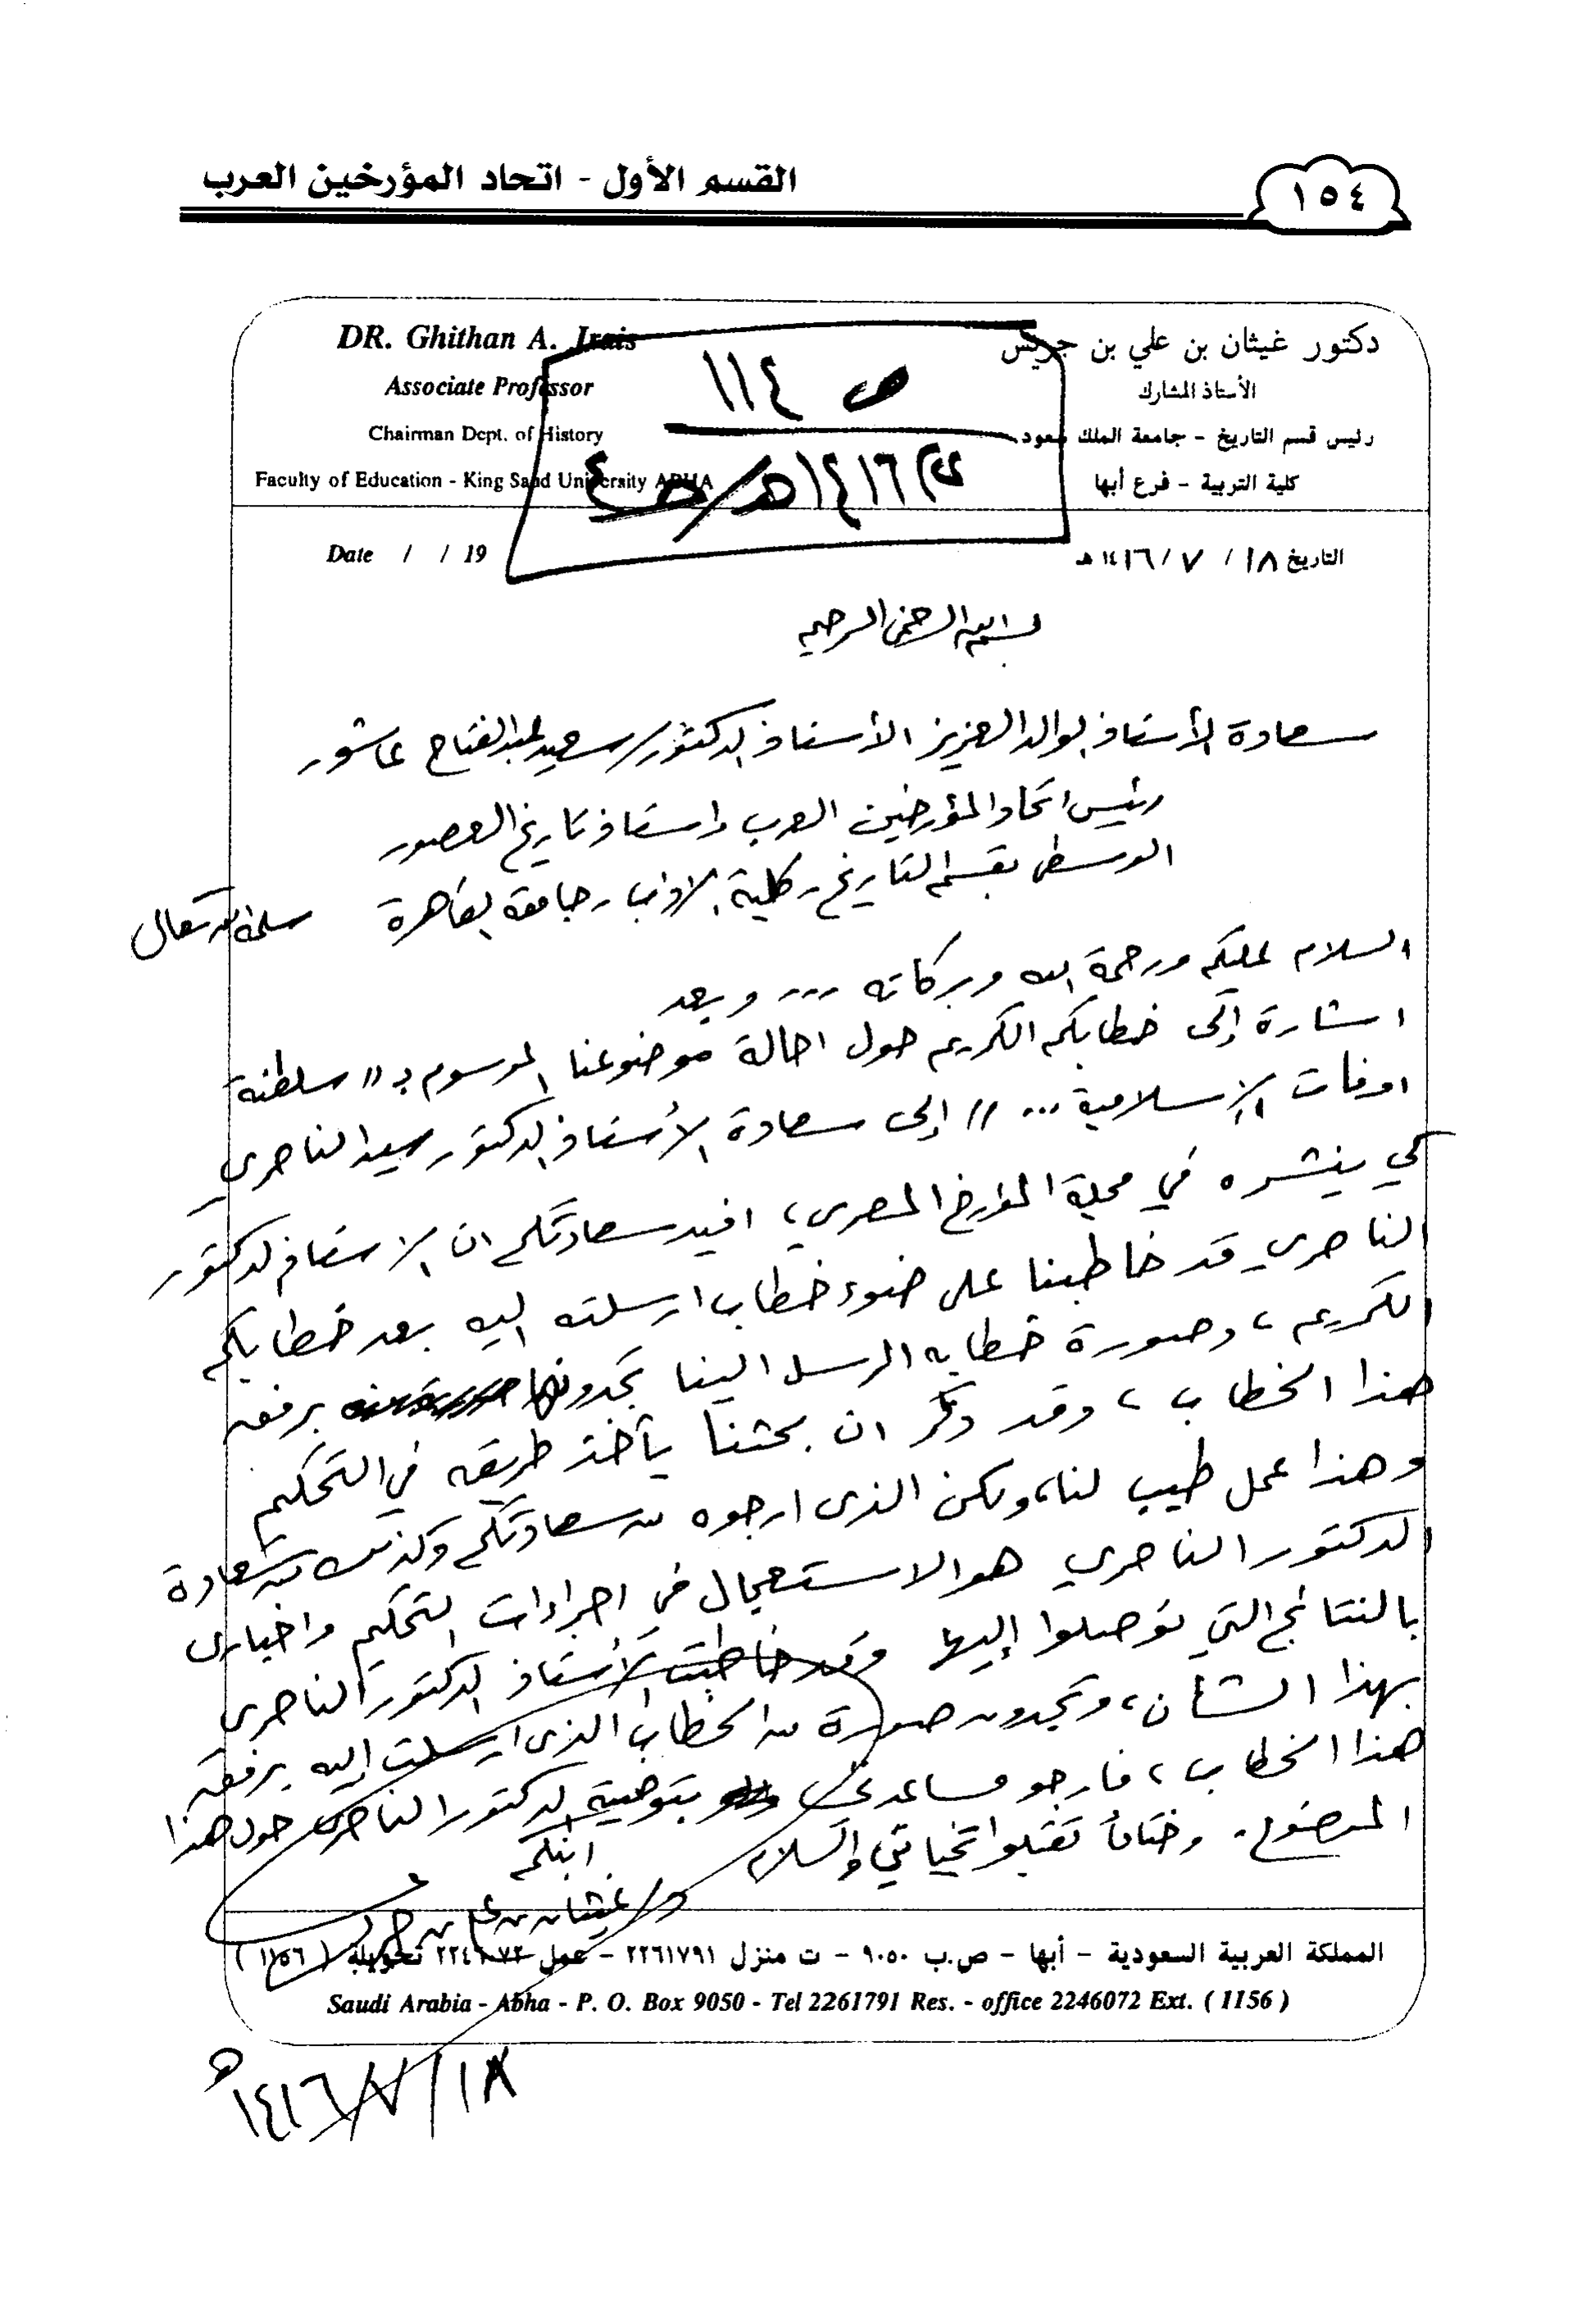 القسم الأول - اتحاد المؤرخين العرب
١٥٤
DR. Ghithan A. Jrais
دكتور غيثان بن علي بن جريس
Associate Professor
الأستاذ المشارك
Chairman Dept. of History
رئيس قسم التاريخ - جامعة الملك سعود
Faculty of Education - King Saud University ABHA
كلية التربية - فرع أبها
ص ١١٤
١٤١٦هـ / ج٤
Date / / 19
التاريخ ١٨ / ٧ / ١٤١٦ هـ
بسم الله الرحمن الرحيم
سعادة الأستاذ الوالد العزيز الأستاذ الدكتور/ سعيد عبدالفتاح عاشور
رئيس اتحاد المؤرخين العرب واستاذ تاريخ العصور
الوسطى بقسم التاريخ - كلية الآداب - جامعة القاهرة سلمه الله تعالى
السلام عليكم ورحمة الله وبركاته --- وبعد
اشارة إلى خطابكم الكريم حول احالة موضوعنا الموسوم بـ " سلطنة
اوفات الإسلامية ... " إلى سعادة الأستاذ الدكتور سيد الناصري
كي ينشره في مجلة المؤرخ المصري، افيد سعادتكم ان الاستاذ الدكتور
الناصري قد خاطبنا على ضوء خطاب ارسلته اليه بعد خطابكم
الكريم، وصورة خطابه المرسل الينا تجدونها برفقه
هذا الخطاب، وقد ذكر ان بحثنا يأخذ طريقه في التحكيم
وهذا عمل طيب لنا، ولكن الذى ارجوه من سعادتكم وكذلك من سعادة
الدكتور الناصري هو الاستعجال في اجراءات التحكيم واخبارى
بالنتائج التي توصلوا إليها وقد خاطبت الأستاذ الدكتور الناصري
بهذا الشأن، وتجدون صورة من الخطاب الذى ارسلت إليه برفقه
هذا الخطاب، فارجو مساعدتي بتوصية الدكتور الناصري حول هذا
الموضوع. وختاماً تقبلوا تحياتي والسلام
ابنكم
د/ غيثان بن علي بن جريس
المملكة العربية السعودية - أبها - ص.ب ٩٠٥٠ - ت منزل ٢٢٦١٧٩١ - عمل ٢٢٤٦٠٧٢ تحويلة ( ١١٥٦ )
Saudi Arabia - Abha - P. O. Box 9050 - Tel 2261791 Res. - office 2246072 Ext. ( 1156 )
١٨/٧/١٤١٦هـ